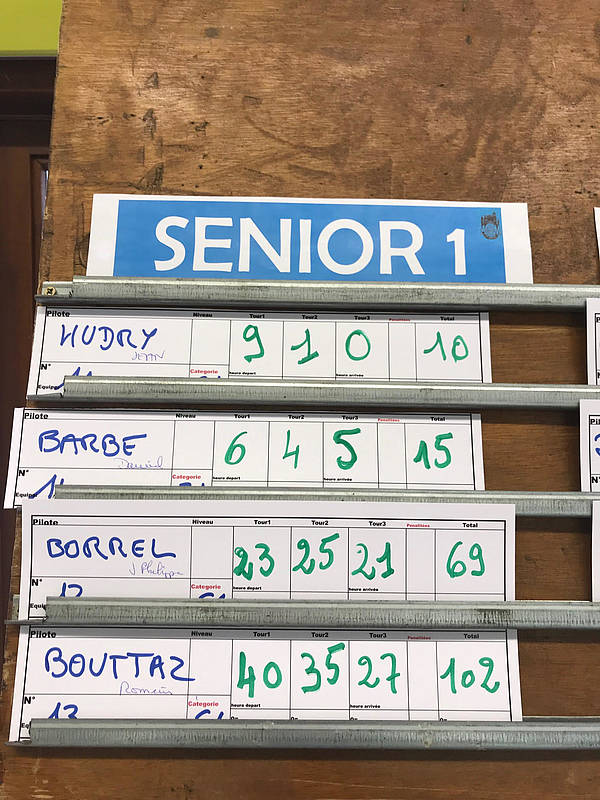 SENIOR 1
Pilote Niveau Tour1 Tour2 Tour3 Penalitées Total
HUDRY 9 1 0 10
JEAN
N° Categorie heure depart heure arrivée
Equipe
Pilote Niveau Tour1 Tour2 Tour3 Penalitées Total
BARBE 6 4 5 15
Daniel
N° Categorie heure depart heure arrivée
Equipe
Pilote Niveau Tour1 Tour2 Tour3 Penalitées Total
BORREL 23 25 21 69
J. Philippe
Categorie heure depart heure arrivée
N° 12 S1
Equi
Pilote Niveau Tour1 Tour2 Tour3 Penalitées Total
BOUTTAZ 40 35 27 102
Romain
Categorie heure depart heure arrivée
N° 13 S1